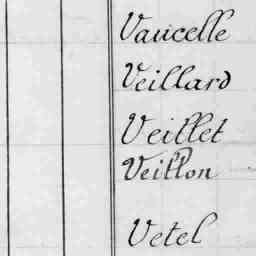 Vaucelle
Veillard
Veillet
Veillon
Vetel